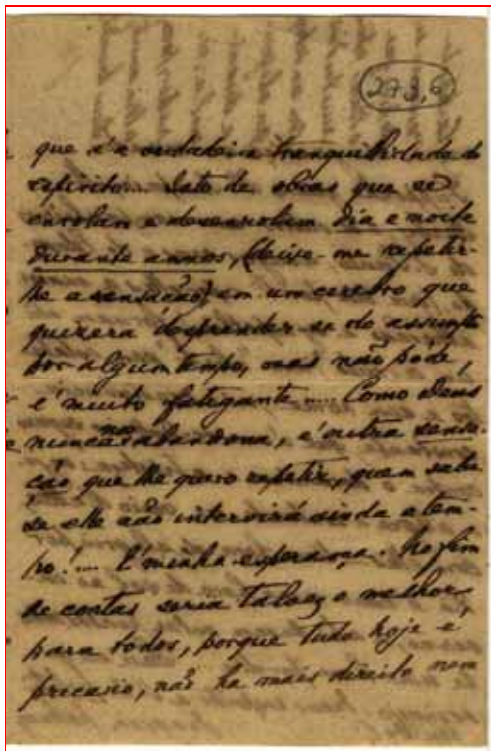 273,6
que é a verdadeira tranquilidade do
espirito... de obras que se
enrolam e desenrolam dia e noite
durante annos, (deixe-me repetir-
lhe a sensação) em um cerebro que
quizera desprender-se do assumpto
por algum tempo, mas não póde,
é muito fatigante..... Como Deus
nunca nos abandona, é outra sensa-
ção que lhe quero repetir, quem sabe
se elle não intervirá ainda a tem-
po!.... É minha esperança. No fim
de contas seria talvez o melhor
para todos, porque tudo hoje é
precario, não ha mais direito nem